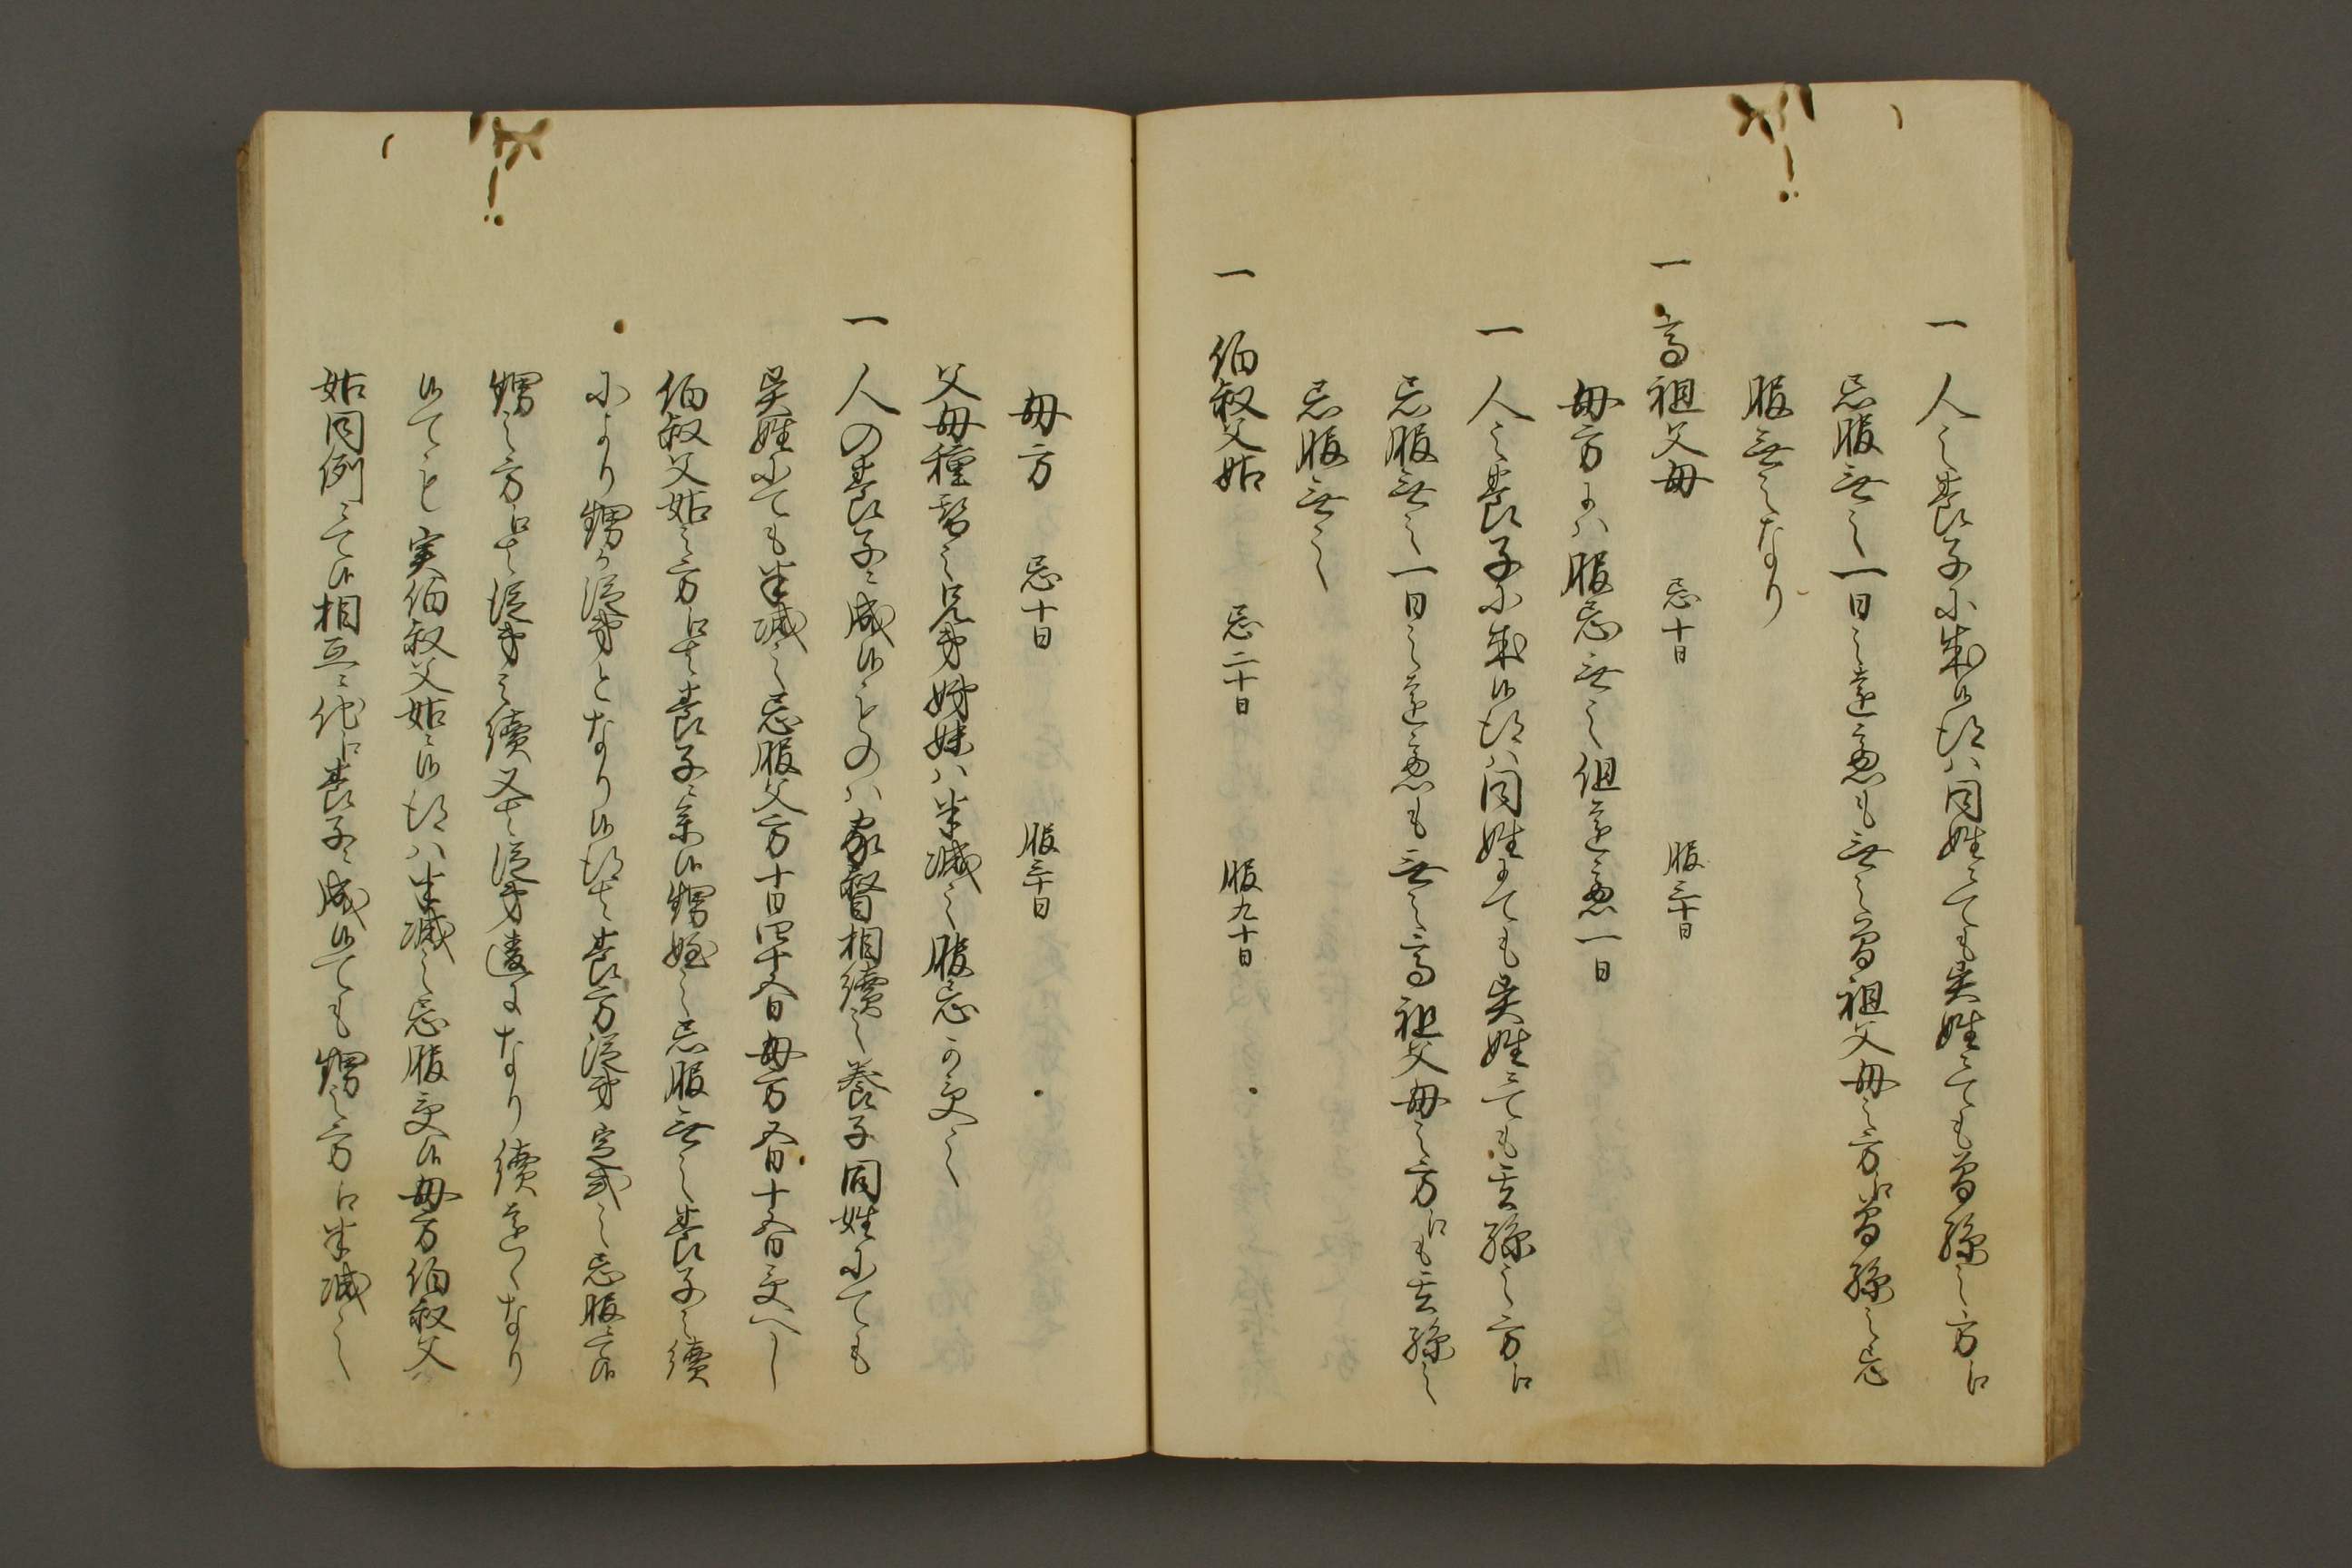 一 人之養子ニ成候得ハ同姓ニても異姓ニても曽孫之方ゟ
忌服無之一日之遠慮も無之曽祖父母之方ゟ曽孫之忌
服無之なり
一 高祖父母 忌十日 服三十日
母方にハ服忌無之但遠慮一日
一 人之養子に成候得ハ同姓にても異姓ニても玄孫之方ゟ
忌服無之一日之遠慮も無之高祖父母之方ゟも玄孫之
忌服無之
一 伯叔父姑 忌二十日 服九十日
母方 忌十日 服三十日
父母種替之兄弟姉妹ハ半減之服忌可受之
一 人の養子ニ成候ものハ家督相続之養子同姓にても
異姓にても半減之忌服父方十日四十五日母方五日十五日受へし
伯叔父姑之方ゟ者養子ニ参候甥姪之忌服無之養子之続
により甥か従弟となり候得者養方従弟定式之忌服ニ候
甥之方ゟ者従弟之続又者従弟違になり続遠くなり
候ても実伯叔父姑ニ候得ハ半減之忌服受候母方伯叔父
姑同例ニて候相互ニ他ゟ養子ニ成候ても甥之方ゟ半減之